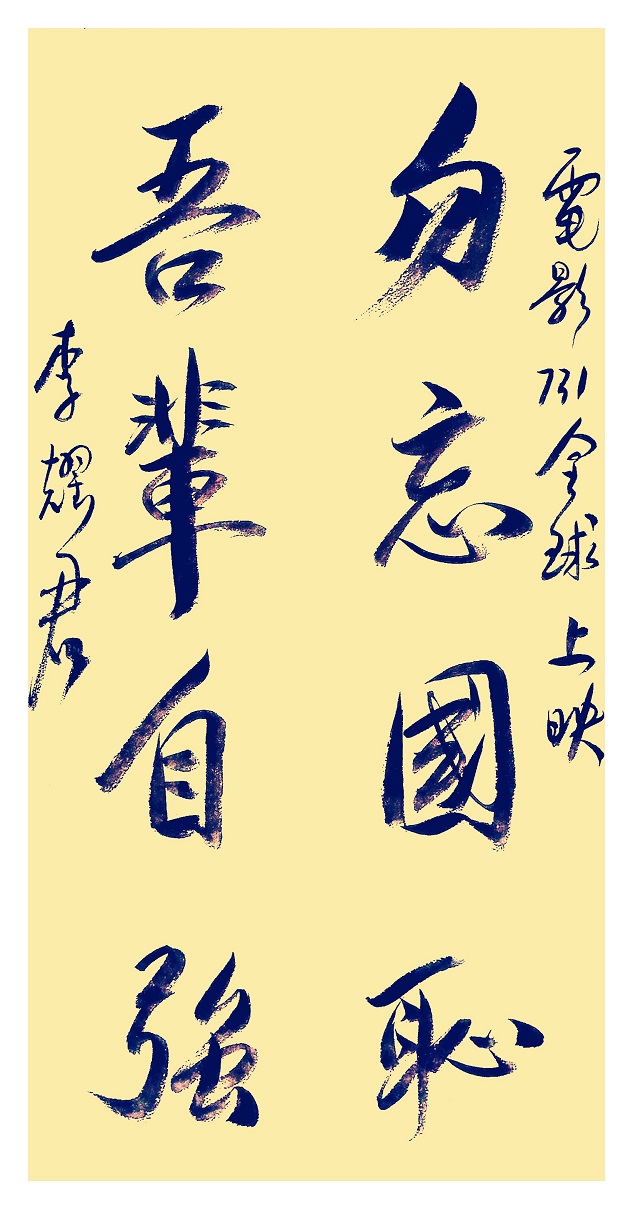 電影731全球上映
勿忘國恥
吾輩自強
李耀君